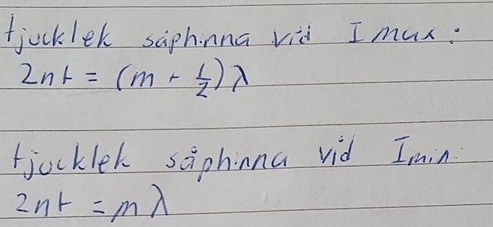 tjocklek såphinna vid I max:
2nt = (m + 1/2)λ
tjocklek såphinna vid Imin.
2nt = mλ